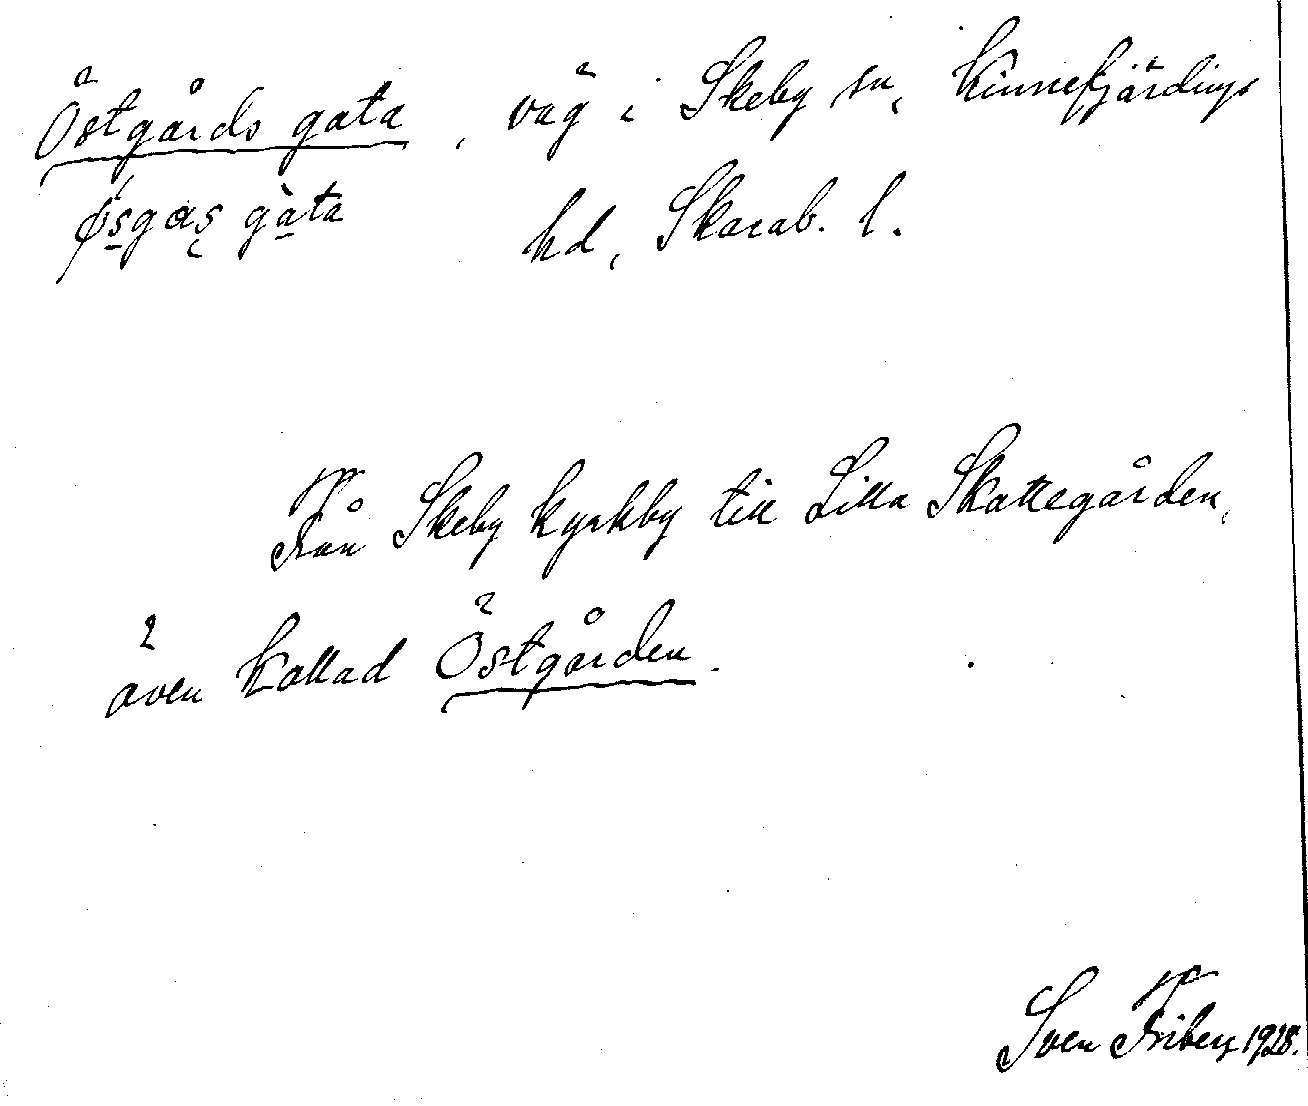 Östgårds gata, väg i Skeby sn, Kinnefjärdings
øsgas gàta hd, Skarab. l.
Från Skeby kyrkby till Lilla Skattegården,
även kallad Östgården.
Sven Friberg 1928.